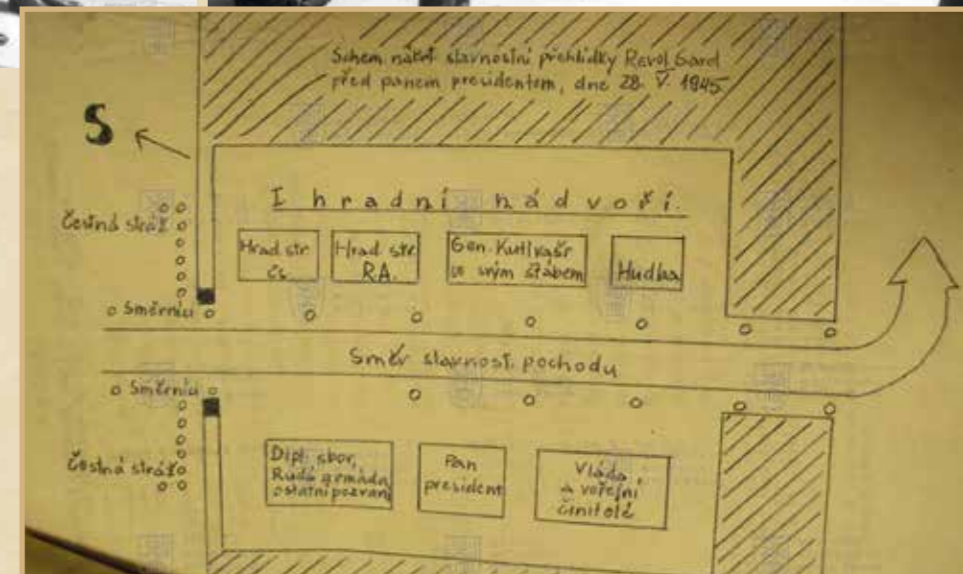 Schem nákr slavnostní přehlídky Revol Gard
před panem presidentem, dne 28. V. 1945.
S
I hradní nádvoří.
Čestná stráž
Hrad str.
čs.
Hrad. str.
RA.
Gen. Kutlvašr
se svým štábem
Hudba
Směrníci
Směr slavnost. pochodu
Směrníci
Čestná stráž
Dipl. sbor,
Rudá armáda,
ostatní pozvaní
Pan
president
Vláda
a veřejní
činitelé